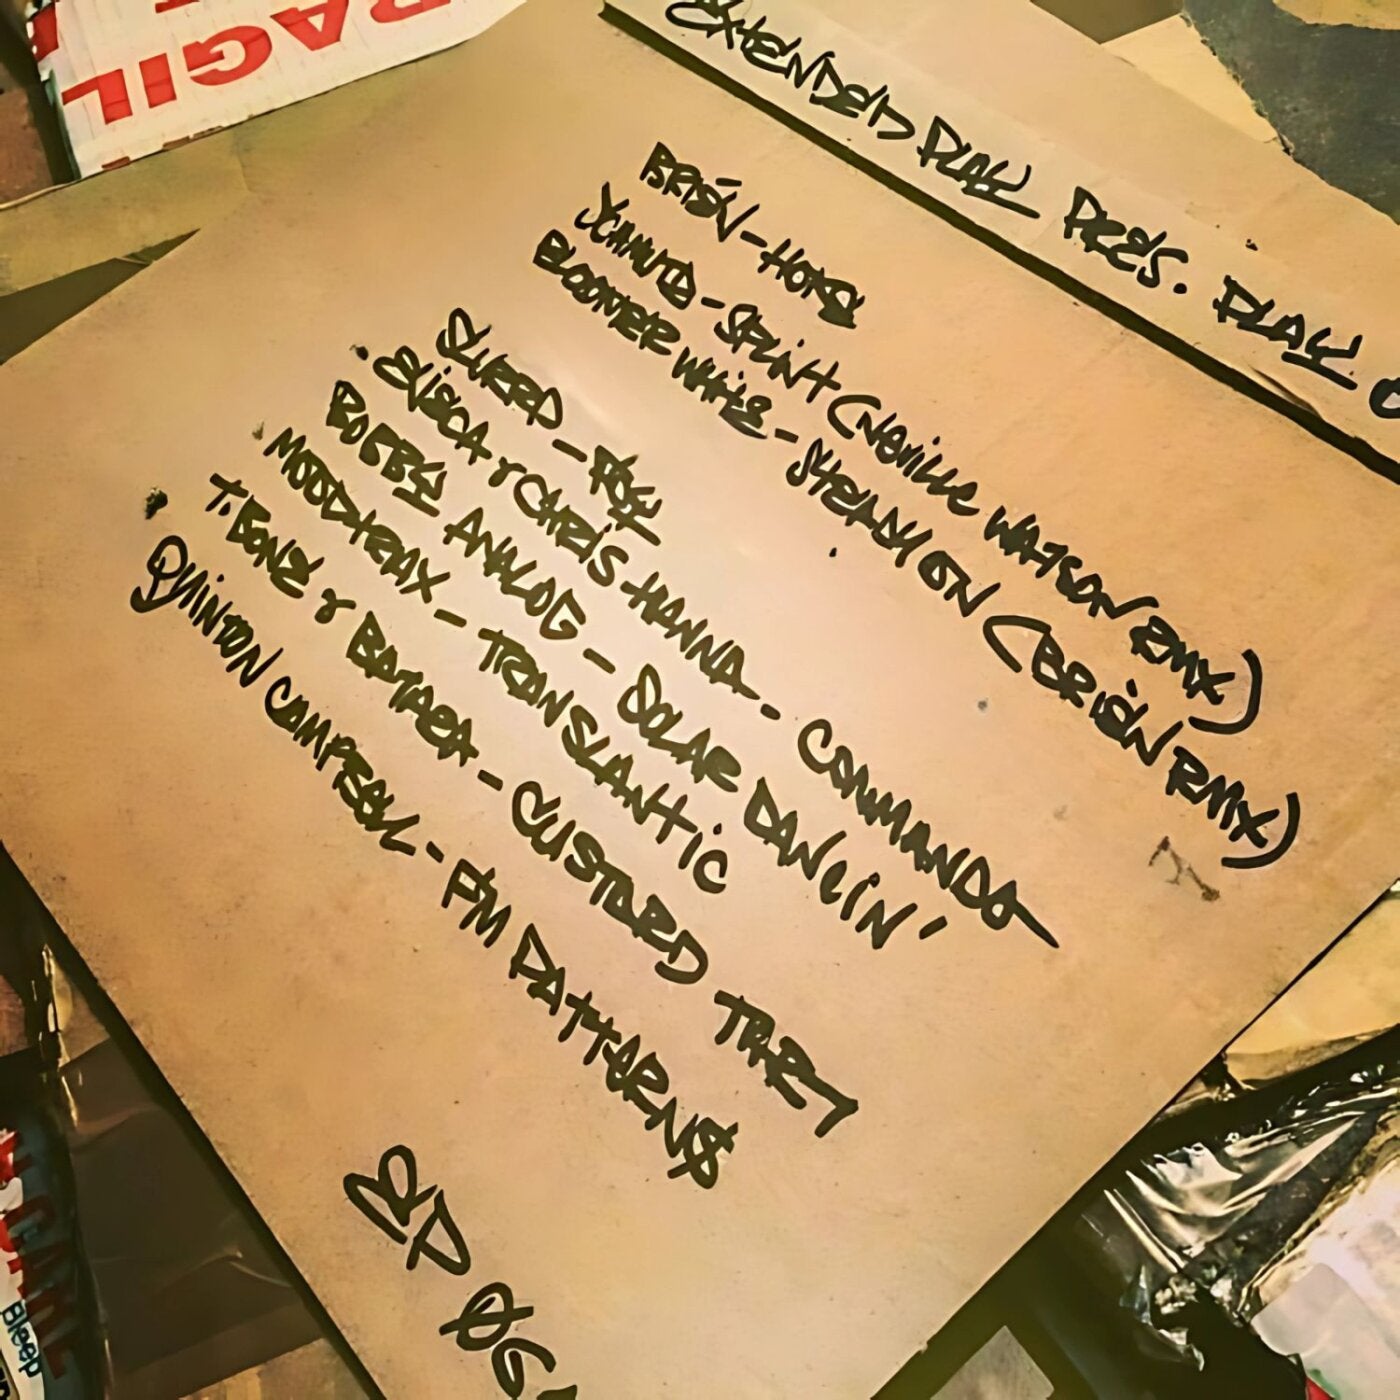 FRAGIL
EXTENDED PLAY PRES. PLAY
BRSY - HOBB
SCHMUTED - SPLINT (NEVILLE WATSON RMX)
BLOOMERS WHITE - STEADY ON (BRIEN RMX)
STABB -
ELISBA & CHRIS HANNA - COMMANDO
ANALOG - SOLAR DANCIN'
MOODTRAX - TRANSLANTIC
T.BONE & BATAGA - CUSTARD TART
QUINTON CAMPBELL - FM PATTORNS
EP 06
Bleep